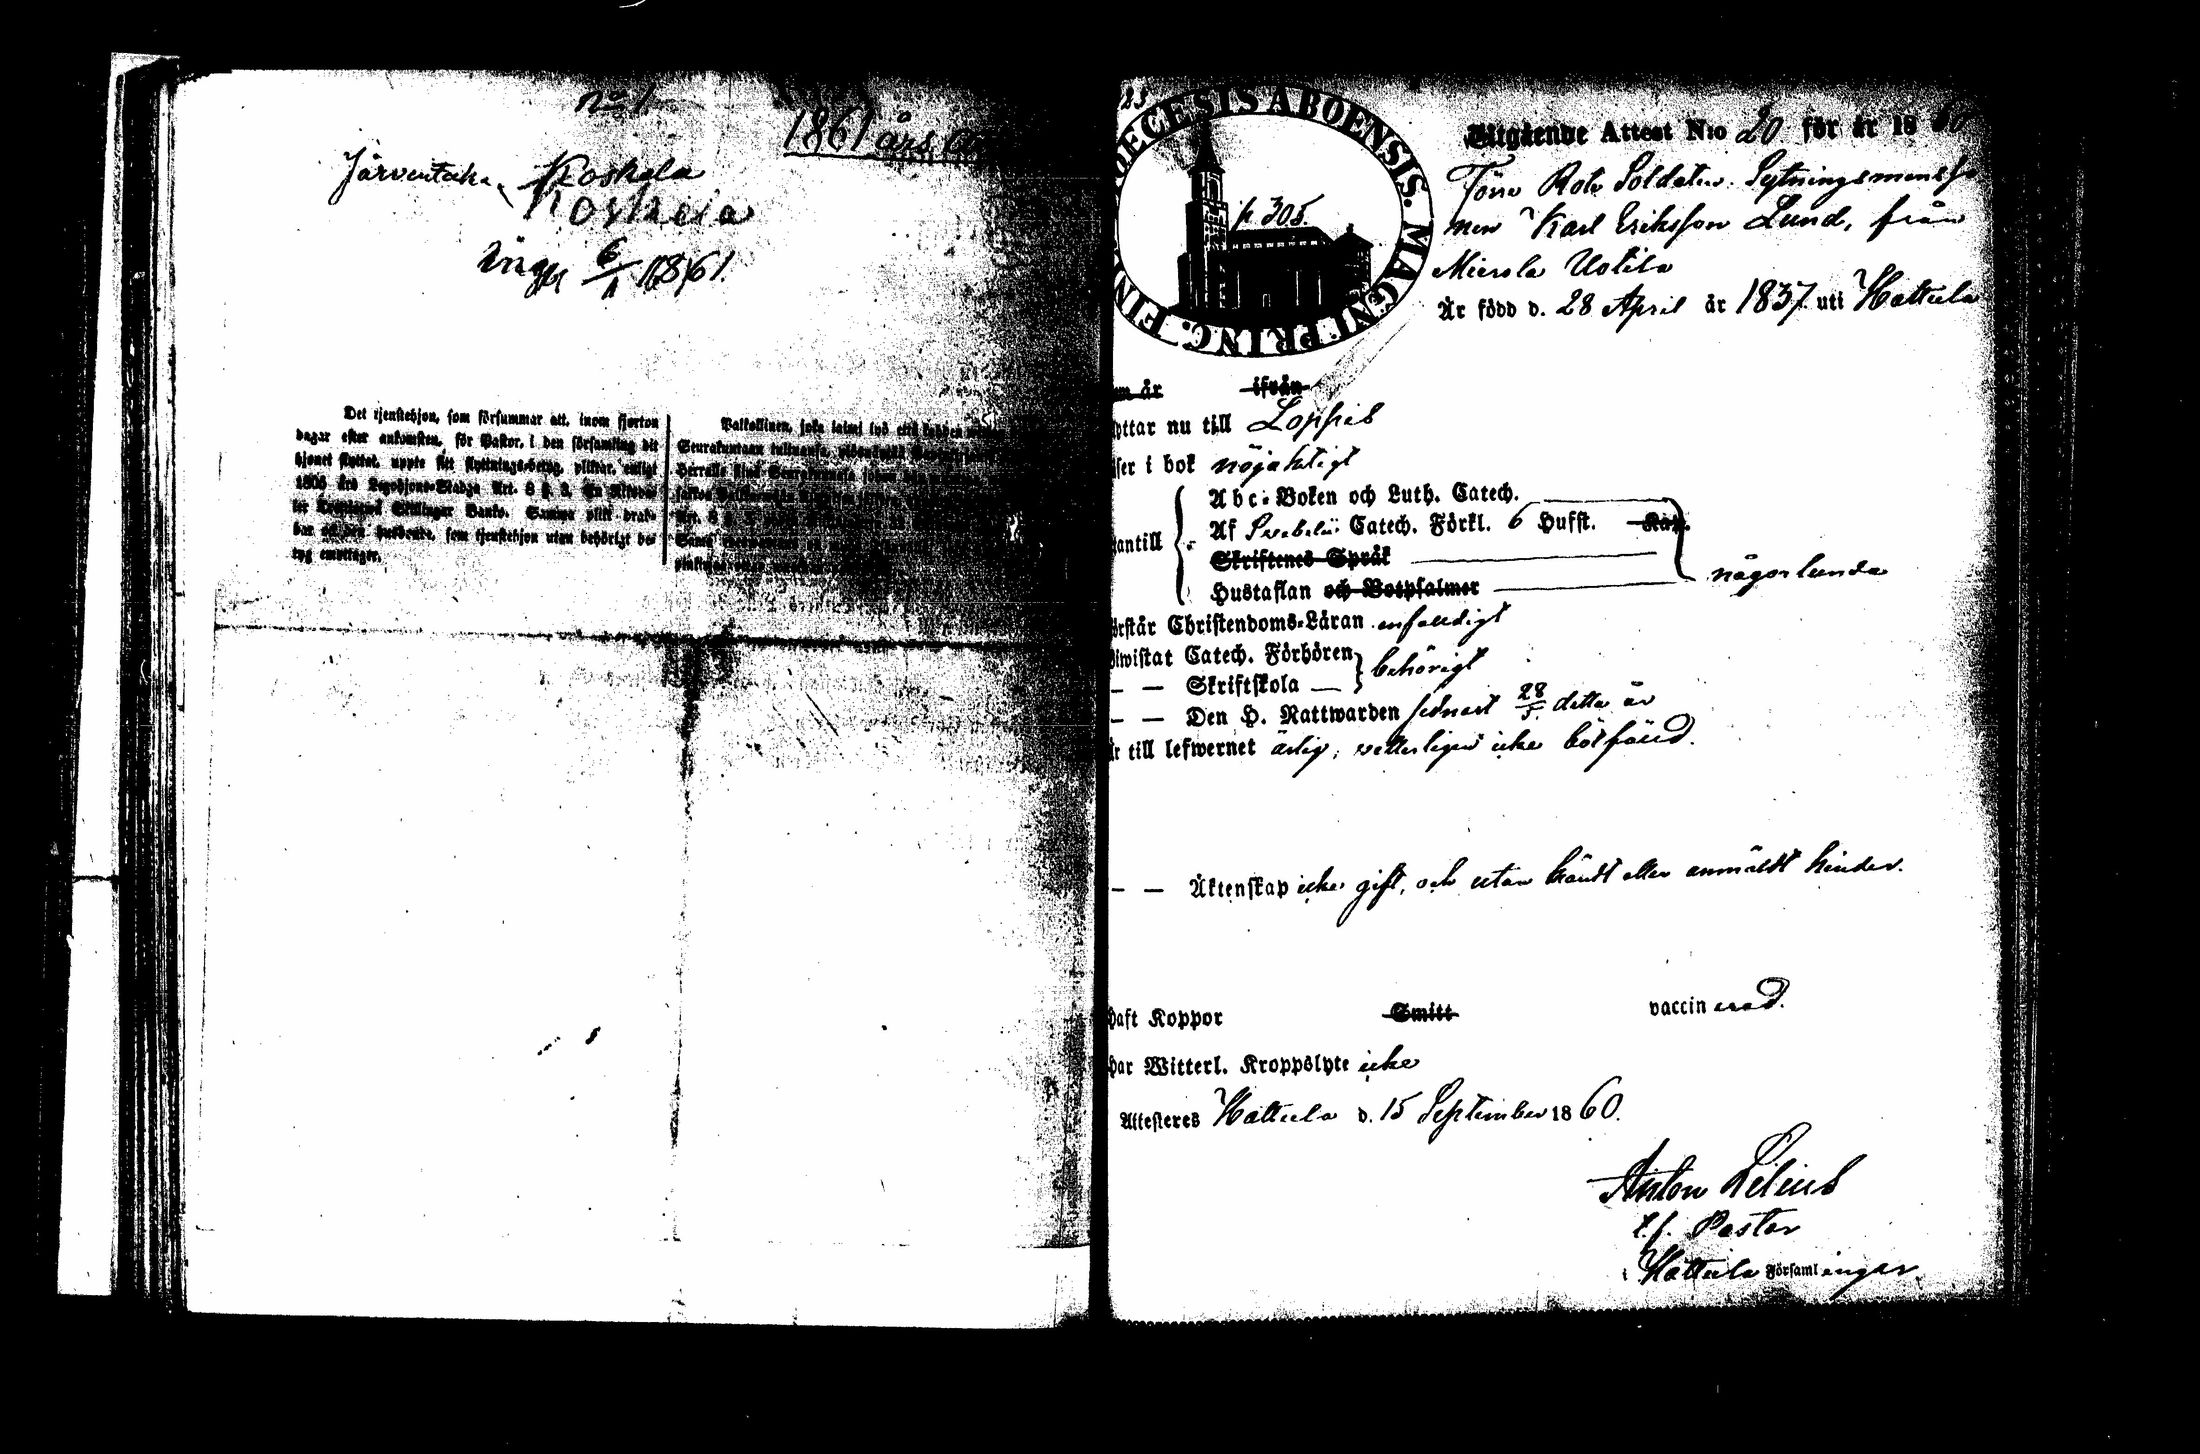 No 1
1861 års
Järventaka Koskela
Koskela
Ing. 6/1 1861.
Det tjenstehjon, som försummar att, inom fjorton
dagar efter ankomsten, för Pastor, i den församling dit
hjonet flyttat, uppte sitt flyttnings-betyg, plikte, enligt
1805 års Legohjons-Stadga Art. 8 §. 3.
ter Skillingar Banko. Samma plikt drab-
bar husbonde, som tjenstehjon utan behörigt be-
tyg emottager.
Palkollinen, joka
Seurakuntaan tultuansa,
23
DIOECESIS ABOENSIS. MAGNI PRINC. FIN
p 305.
Utgående Attest N:o 20 för år 1860
Förre Rote Soldaten. Sytningsmans
men Karl Eriksson Lund, från
Mierola Uotila
Är född d. 28 April år 1837 uti Hattula
om år ifrån
yttar nu till Loppis
ser i bok nöjaktigt
Abc-Boken och Luth. Catech.
antill Af Svebelii Catech. Förkl. 6 Hufst. Kap.
Skriftenes Språk
Hustaflan och Botpsalmer någorlunda
örstår Christendoms-Läran enfaldigt
biwistat Catech. Förhören behörigt
— — Skriftskola —
— — Den H. Nattwarden sednast 28/5 detta år
är till lefwernet ärlig, vetterligen icke bötfäld.
— — Äktenskap icke gift, och utan kändt eller anmäldt hinder.
haft Koppor Smitt vaccinerad.
har Witterl. Kroppslyte icke
Attesteres Hattula d. 15 September 1860.
Anton Lilius
t.f. Pastor
i Hattula Församlingar